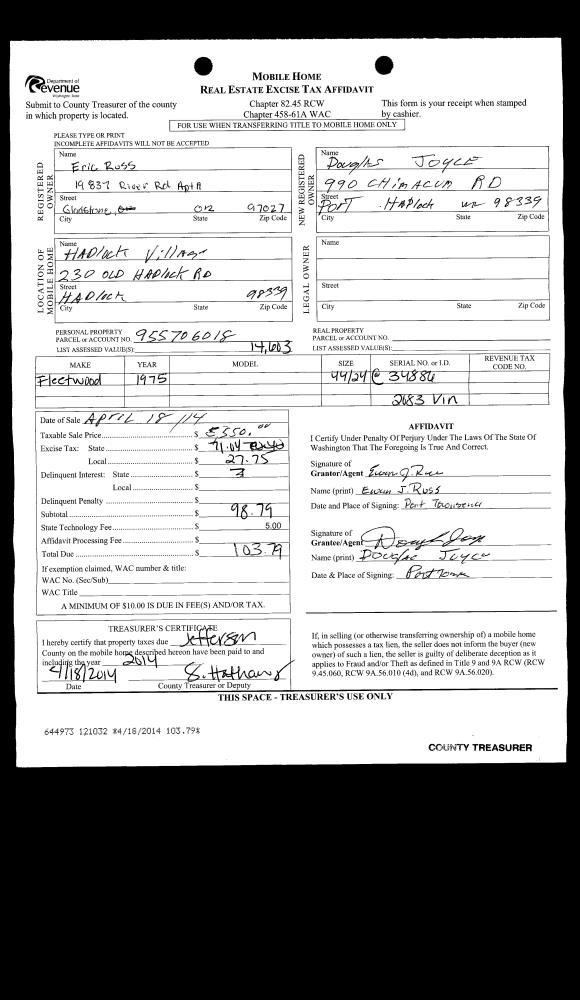 Department of
Revenue
Washington State
MOBILE HOME
REAL ESTATE EXCISE TAX AFFIDAVIT
Submit to County Treasurer of the county
in which property is located.
Chapter 82.45 RCW
Chapter 458-61A WAC
This form is your receipt when stamped
by cashier.
FOR USE WHEN TRANSFERRING TITLE TO MOBILE HOME ONLY
PLEASE TYPE OR PRINT
INCOMPLETE AFFIDAVITS WILL NOT BE ACCEPTED
REGISTERED OWNER
Name
Eric Ross
19837 River Rd Apt A
Street
Gladstone, OR 97027
City State Zip Code
NEW REGISTERED OWNER
Name
Douglas JOYCE
990 CHIMACUM RD
Street
PORT HADlock WA 98339
City State Zip Code
LOCATION OF MOBILE HOME
Name
HADlock Village
230 OLD HADlock RD
Street
HADlock 98339
City State Zip Code
LEGAL OWNER
Name
Street
City State Zip Code
PERSONAL PROPERTY
PARCEL or ACCOUNT NO. 955706018
LIST ASSESSED VALUE(S): 14,603
REAL PROPERTY
PARCEL or ACCOUNT NO.
LIST ASSESSED VALUE(S):
MAKE YEAR MODEL SIZE SERIAL NO. or I.D. REVENUE TAX CODE NO.
Fleetwood 1975 44/24 34886
2683 Vin
Date of Sale APRIL 18/14
Taxable Sale Price $ 5350.00
Excise Tax: State $ 71.04
Local $ 27.75
Delinquent Interest: State $
Local $
Delinquent Penalty $
Subtotal $ 98.79
State Technology Fee $ 5.00
Affidavit Processing Fee $
Total Due $ 103.79
If exemption claimed, WAC number & title:
WAC No. (Sec/Sub)
WAC Title
A MINIMUM OF $10.00 IS DUE IN FEE(S) AND/OR TAX.
AFFIDAVIT
I Certify Under Penalty Of Perjury Under The Laws Of The State Of
Washington That The Foregoing Is True And Correct.
Signature of
Grantor/Agent
Name (print) Erwin J. Russ
Date and Place of Signing: Port Townsend
Signature of
Grantee/Agent
Name (print) Douglas Joyce
Date & Place of Signing: Port
TREASURER'S CERTIFICATE
I hereby certify that property taxes due Jefferson
County on the mobile home described hereon have been paid to and
including the year 2014
4/18/2014 S. Hathaway
Date County Treasurer or Deputy
If, in selling (or otherwise transferring ownership of) a mobile home
which possesses a tax lien, the seller does not inform the buyer (new
owner) of such a lien, the seller is guilty of deliberate deception as it
applies to Fraud and/or Theft as defined in Title 9 and 9A RCW (RCW
9.45.060, RCW 9A.56.010 (4d), and RCW 9A.56.020).
THIS SPACE - TREASURER'S USE ONLY
644973 121032 *4/18/2014 103.79*
COUNTY TREASURER